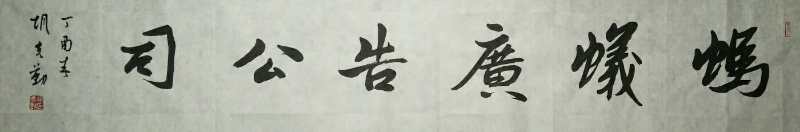 螞蟻廣告公司
丁酉春
胡友勤